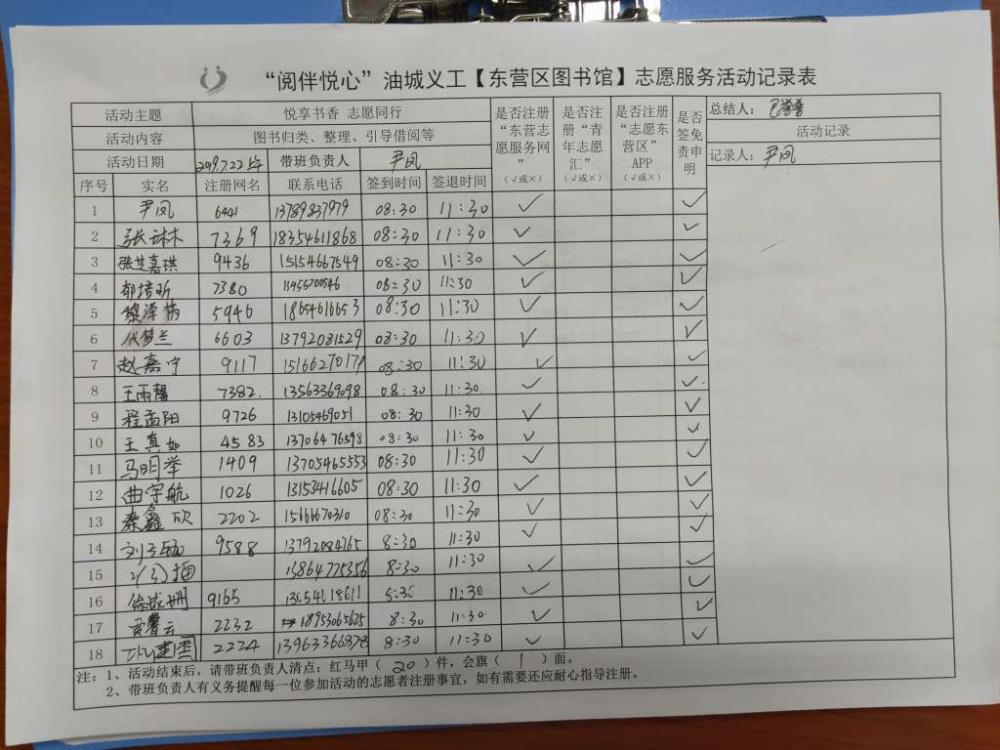 “阅伴悦心”油城义工【东营区图书馆】志愿服务活动记录表
活动主题 悦享书香 志愿同行 是否注册“东营志愿服务网”（√或×） 是否注册“青年志愿汇”（√或×） 是否注册“志愿东营区”APP（√或×） 是否签免责申明 总结人：
活动内容 图书归类、整理、引导借阅等 活动记录
活动日期 2019.7.22 带班负责人 尹凤 记录人：尹凤
序号 实名 注册网名 联系电话 签到时间 签退时间
1 尹凤 6441 13789837979 08:30 11:30 √ √
2 张琳 7369 18354611868 08:30 11:30 √ √
3 张艾嘉琪 9436 15154667549 08:30 11:30 √ √
4 郁培昕 7380 08:30 11:30 √ √
5 黎泽 5946 18654616653 08:30 11:30 √ √
6 伏梦兰 6603 13792081529 08:30 11:30 √ √
7 赵嘉宁 9117 15166270171 08:30 11:30 √ √
8 王雨馨 7382 13563369098 08:30 11:30 √ √
9 程孟阳 9726 13105469051 08:30 11:30 √ √
10 王真如 4583 13706476598 08:30 11:30 √ √
11 马明举 1409 13705465553 08:30 11:30 √ √
12 曲宇航 1026 13153416605 08:30 11:30 √ √
13 秦鑫欣 2202 08:30 11:30 √ √
14 9588 13792084765 8:30 11:30 √ √
15 13864775356 8:30 11:30 √ √
16 9165 8:30 11:30 √ √
17 雷馨云 2232 18953065625 8:30 11:30 √ √
18 2224 13963366878 8:30 11:30 √ √
注：1、活动结束后，请带班负责人清点：红马甲（20）件，会旗（1）面。
2、带班负责人有义务提醒每一位参加活动的志愿者注册事宜，如有需要还应耐心指导注册。